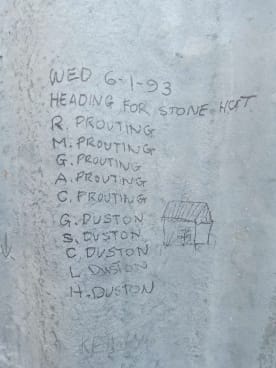 WED 6-1-93
HEADING FOR STONE HUT
R. PROUTING
M. PROUTING
G. PROUTING
A. PROUTING
C. PROUTING
G. DUSTON
S. DUSTON
C DUSTON
L DUSTON
H. DUSTON